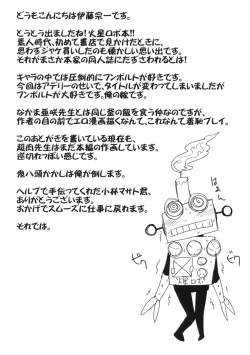 どうもこんにちは伊藤宗一です。
とうとう出ましたね!火星ロボ本!!
素人時代、初めて書店で見かけたときに、
思わずジャケ買いしたのも懐かしい思い出です。
それがまさか本家の同人誌にださされるとは!
キャラの中では圧倒的にフンボルトが好きです。
今回はアデリーのせいで、タイトルが変わってしまいましたが
フンボルトが大好きです。俺の嫁です。
なかま亜咲先生とは同じ釜の飯を食う仲なのですが、
作者の目の前でエロ漫画描くなんて、これなんて羞恥プレイ。
このあとがきを書いている現在も、
先生はまだ本編の作画しています。
逆切れっぽい感じです。
鬼八頭かかしは俺が倒します。
ヘルプで手伝ってくれた小林マサト君、
ありがとうございます。
おかげでスムーズに仕事に戻れます。
それでは。
ビク
ビク